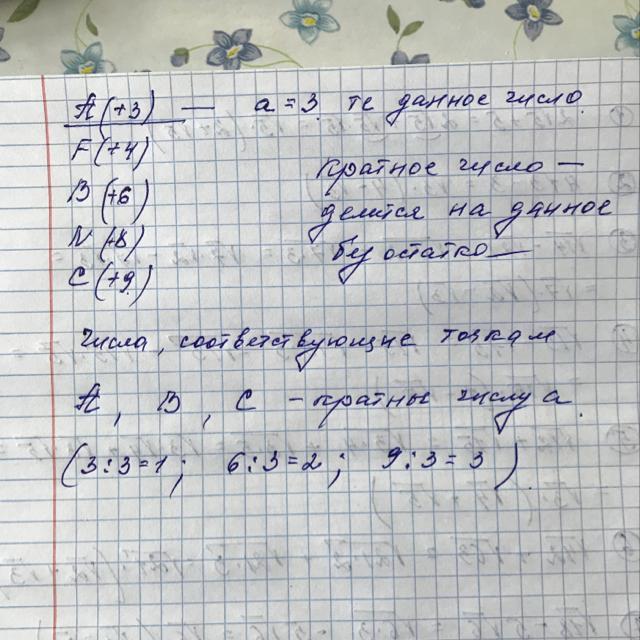 A (+3) — a = 3. те данное число.
F (+4)
B (+6)
N (+8)
C (+9)
кратное число —
делится на данное
без остатко
Числа, соответствующие точкам
A, B, C - кратны числу a.
(3:3=1; 6:3=2; 9:3=3)